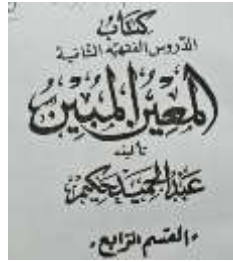 كتاب
الدروس الفقهية الثانية
المعين المبين
تأليف
عبد الحميد حكيم
القسم الرابع